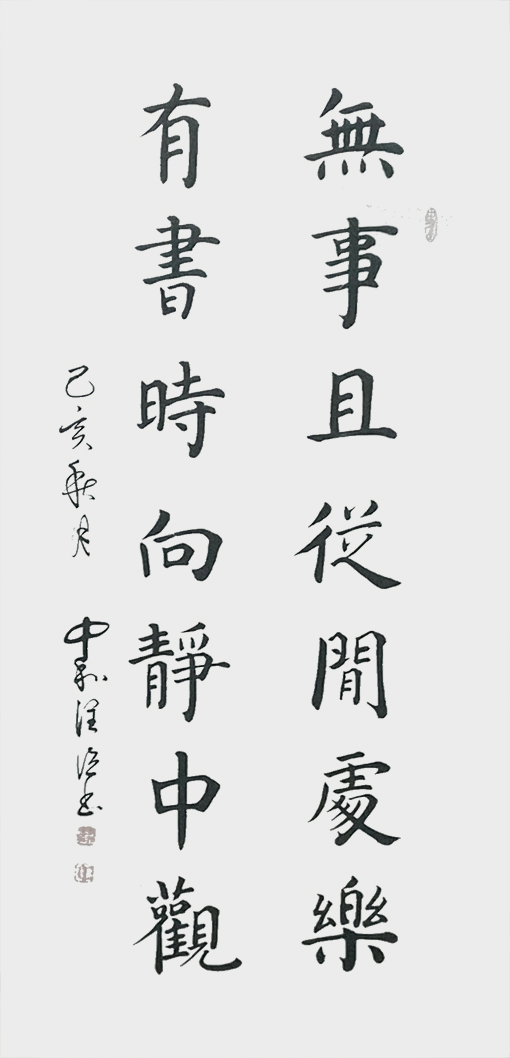 無事且從閒處樂
有書時向靜中觀
己亥秋月 中和
書